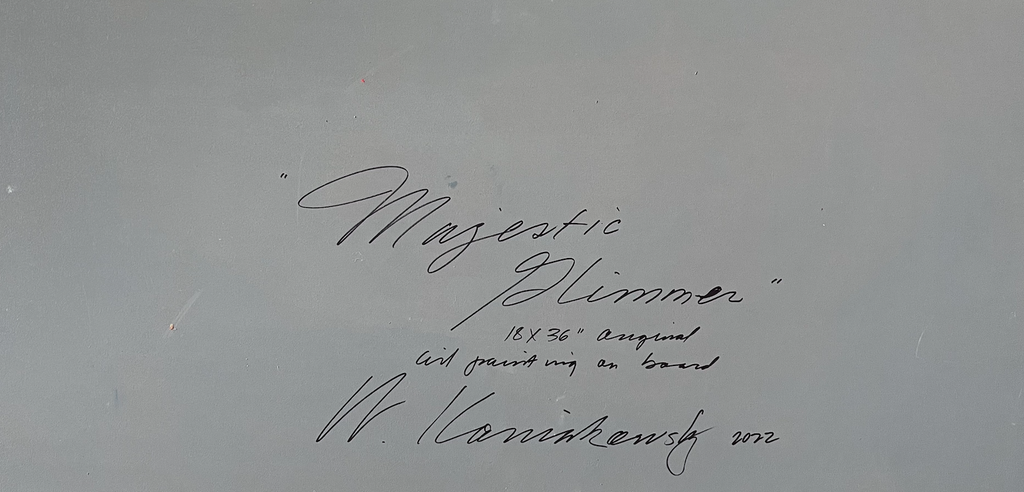 "Majestic
Glimmer"
18X36" original
oil painting on board
W. Koniakowsky 2022